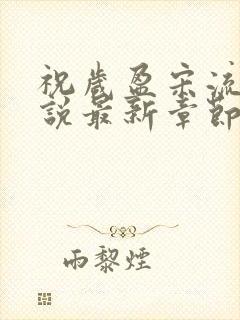 祝歲盈宋流
說最新章節
雨黎煙